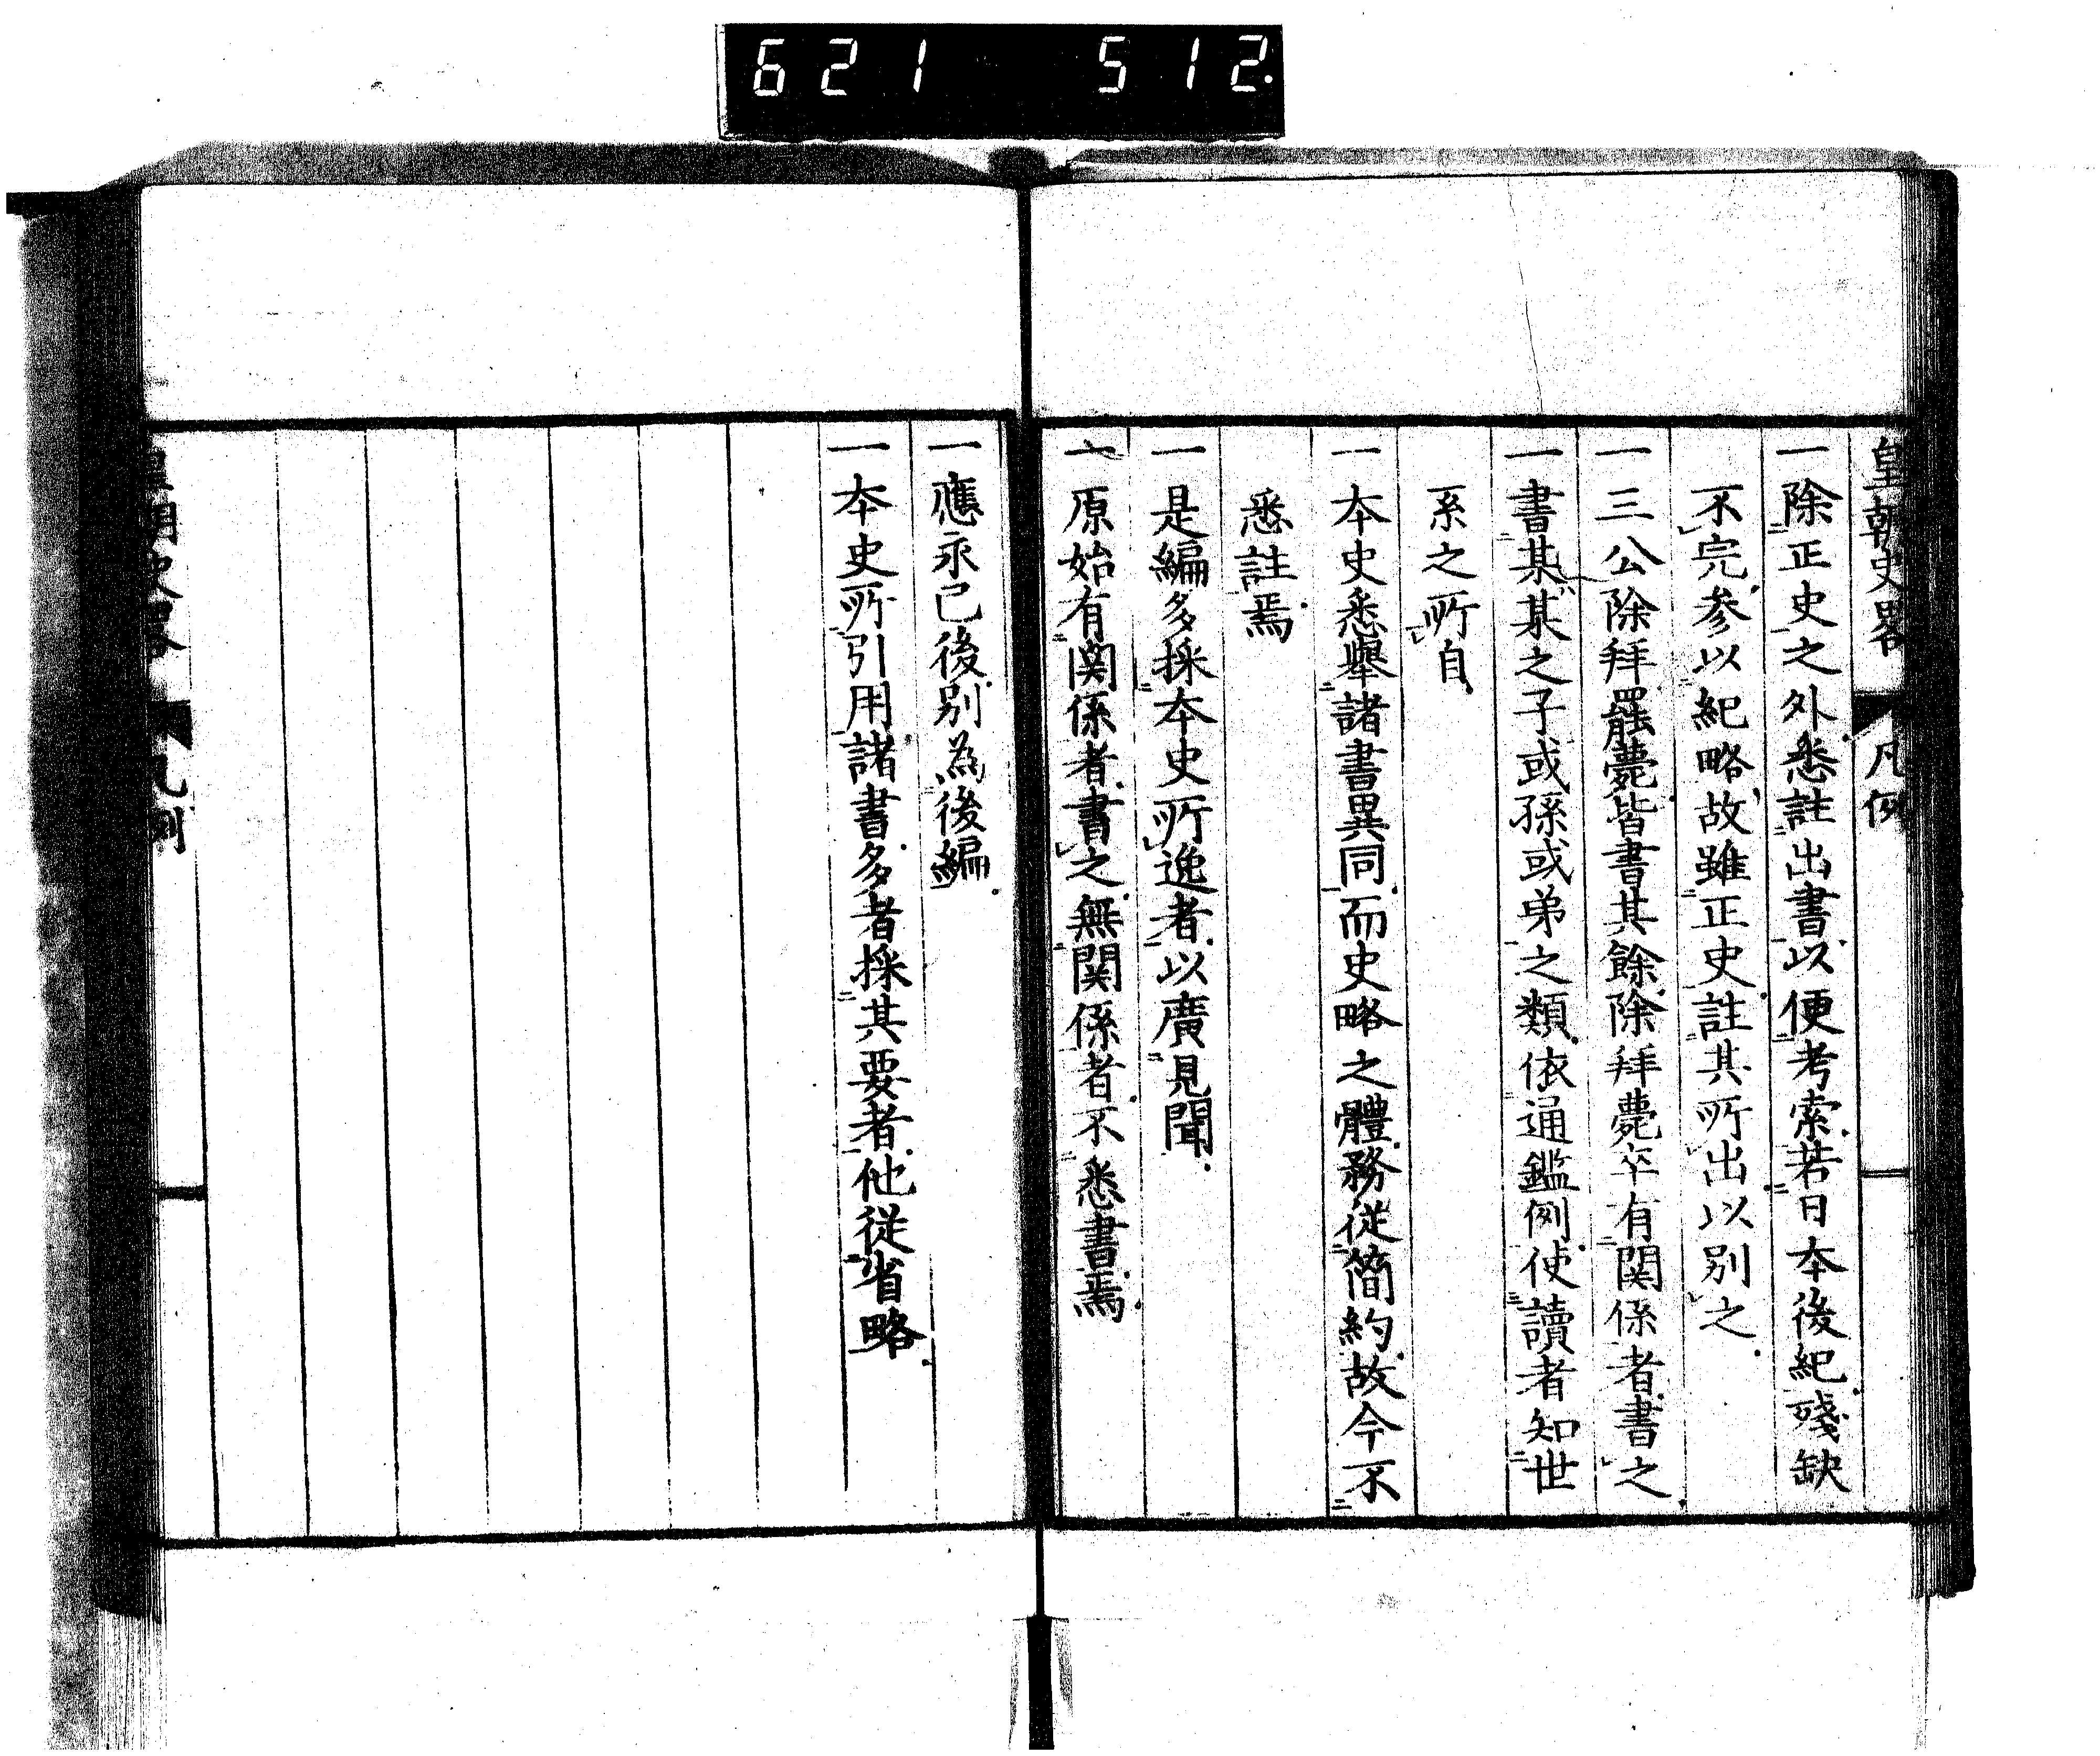 621 512
皇朝史畧 凡例
一除正史之外悉註出書以便考索若日本後紀殘缺
不完参以紀略故雖正史註其所出以別之
一三公除拜罷薨皆書其餘除拜薨卒有関係者書之
一書某某之子或孫或弟之類依通鑑例使讀者知世
系之所自
一本史悉舉諸書異同而史略之體務從簡約故今不
悉註焉
一是編多採本史所逸者以廣見聞
一原始有関係者書之無関係者不悉書焉
一應永已後別為後編
一本史所引用諸書多者採其要者他從省略
皇朝史畧 凡例